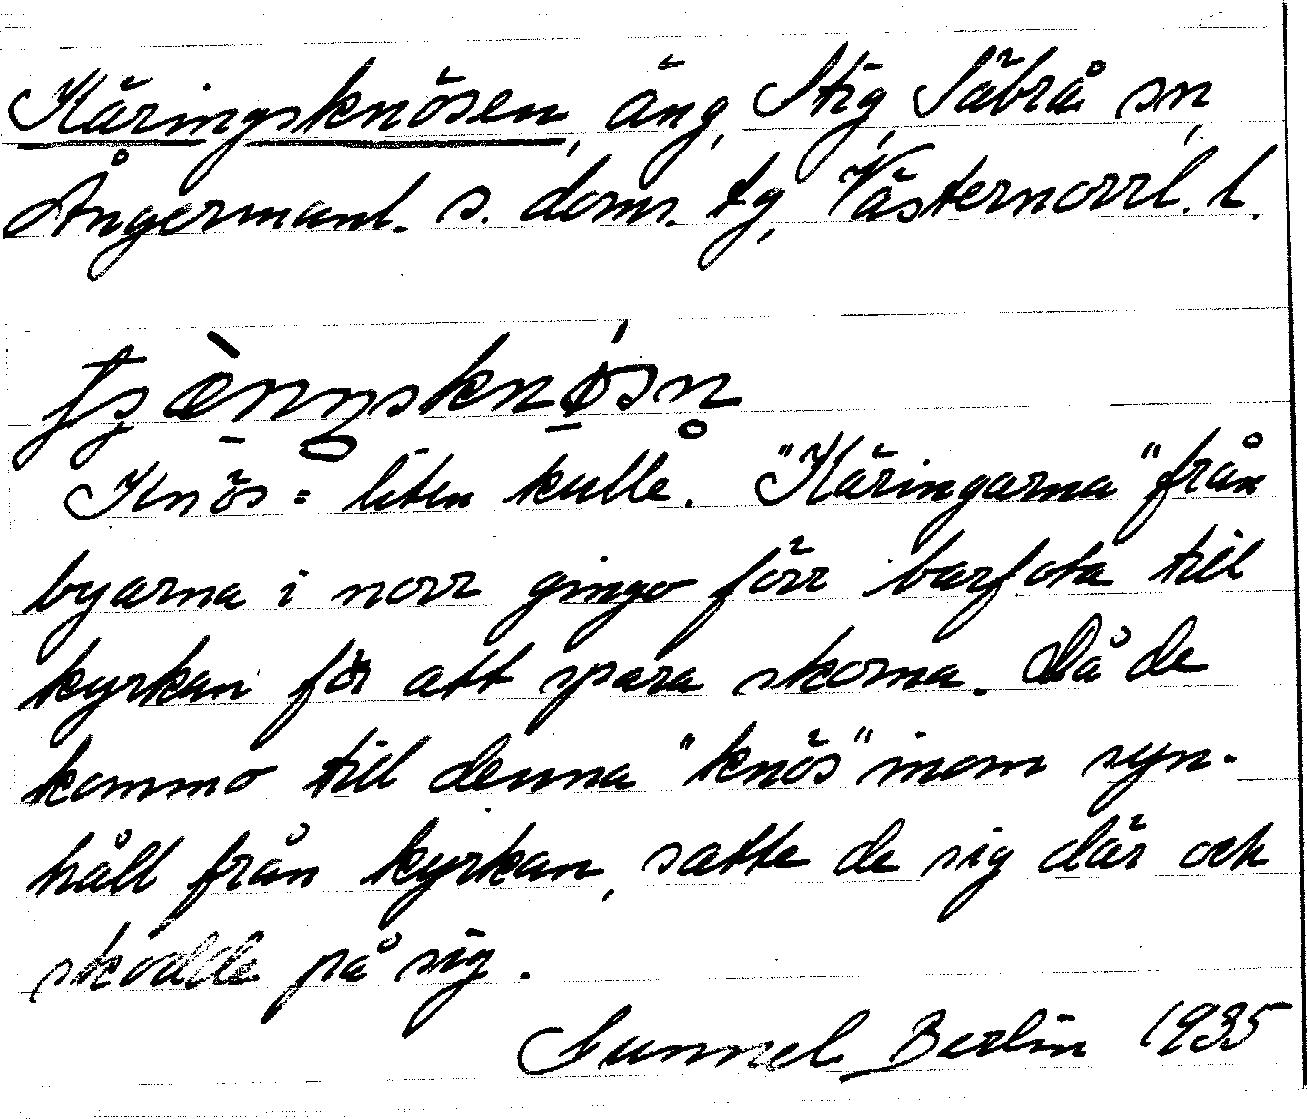 Käringsknösen, äng, Stig, Säbrå sn,
Ångermanl. s. doms. tg, Västernorrl. l.
Knös = liten kulle. "Käringarna" från
byarna i norr gingo förr barfota till
kyrkan för att spara skorna. Då de
kommo till denna "knös" inom syn-
håll från kyrkan, satte de sig där och
skodde på sig.
Gunnel Berlin 1935